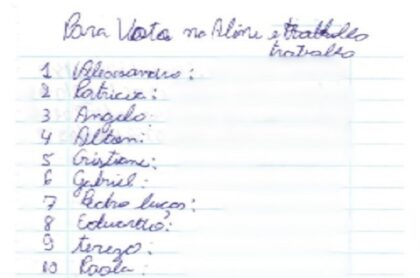 Para Vota no Aline e trabalho
trabalho
1 Alessandro:
2 Patricia:
3 Angelo:
4 Ailton:
5 Cristiane:
6 Gabriel:
7 Pedro lucas:
8 Eduardo:
9 tereza:
10 Paola: